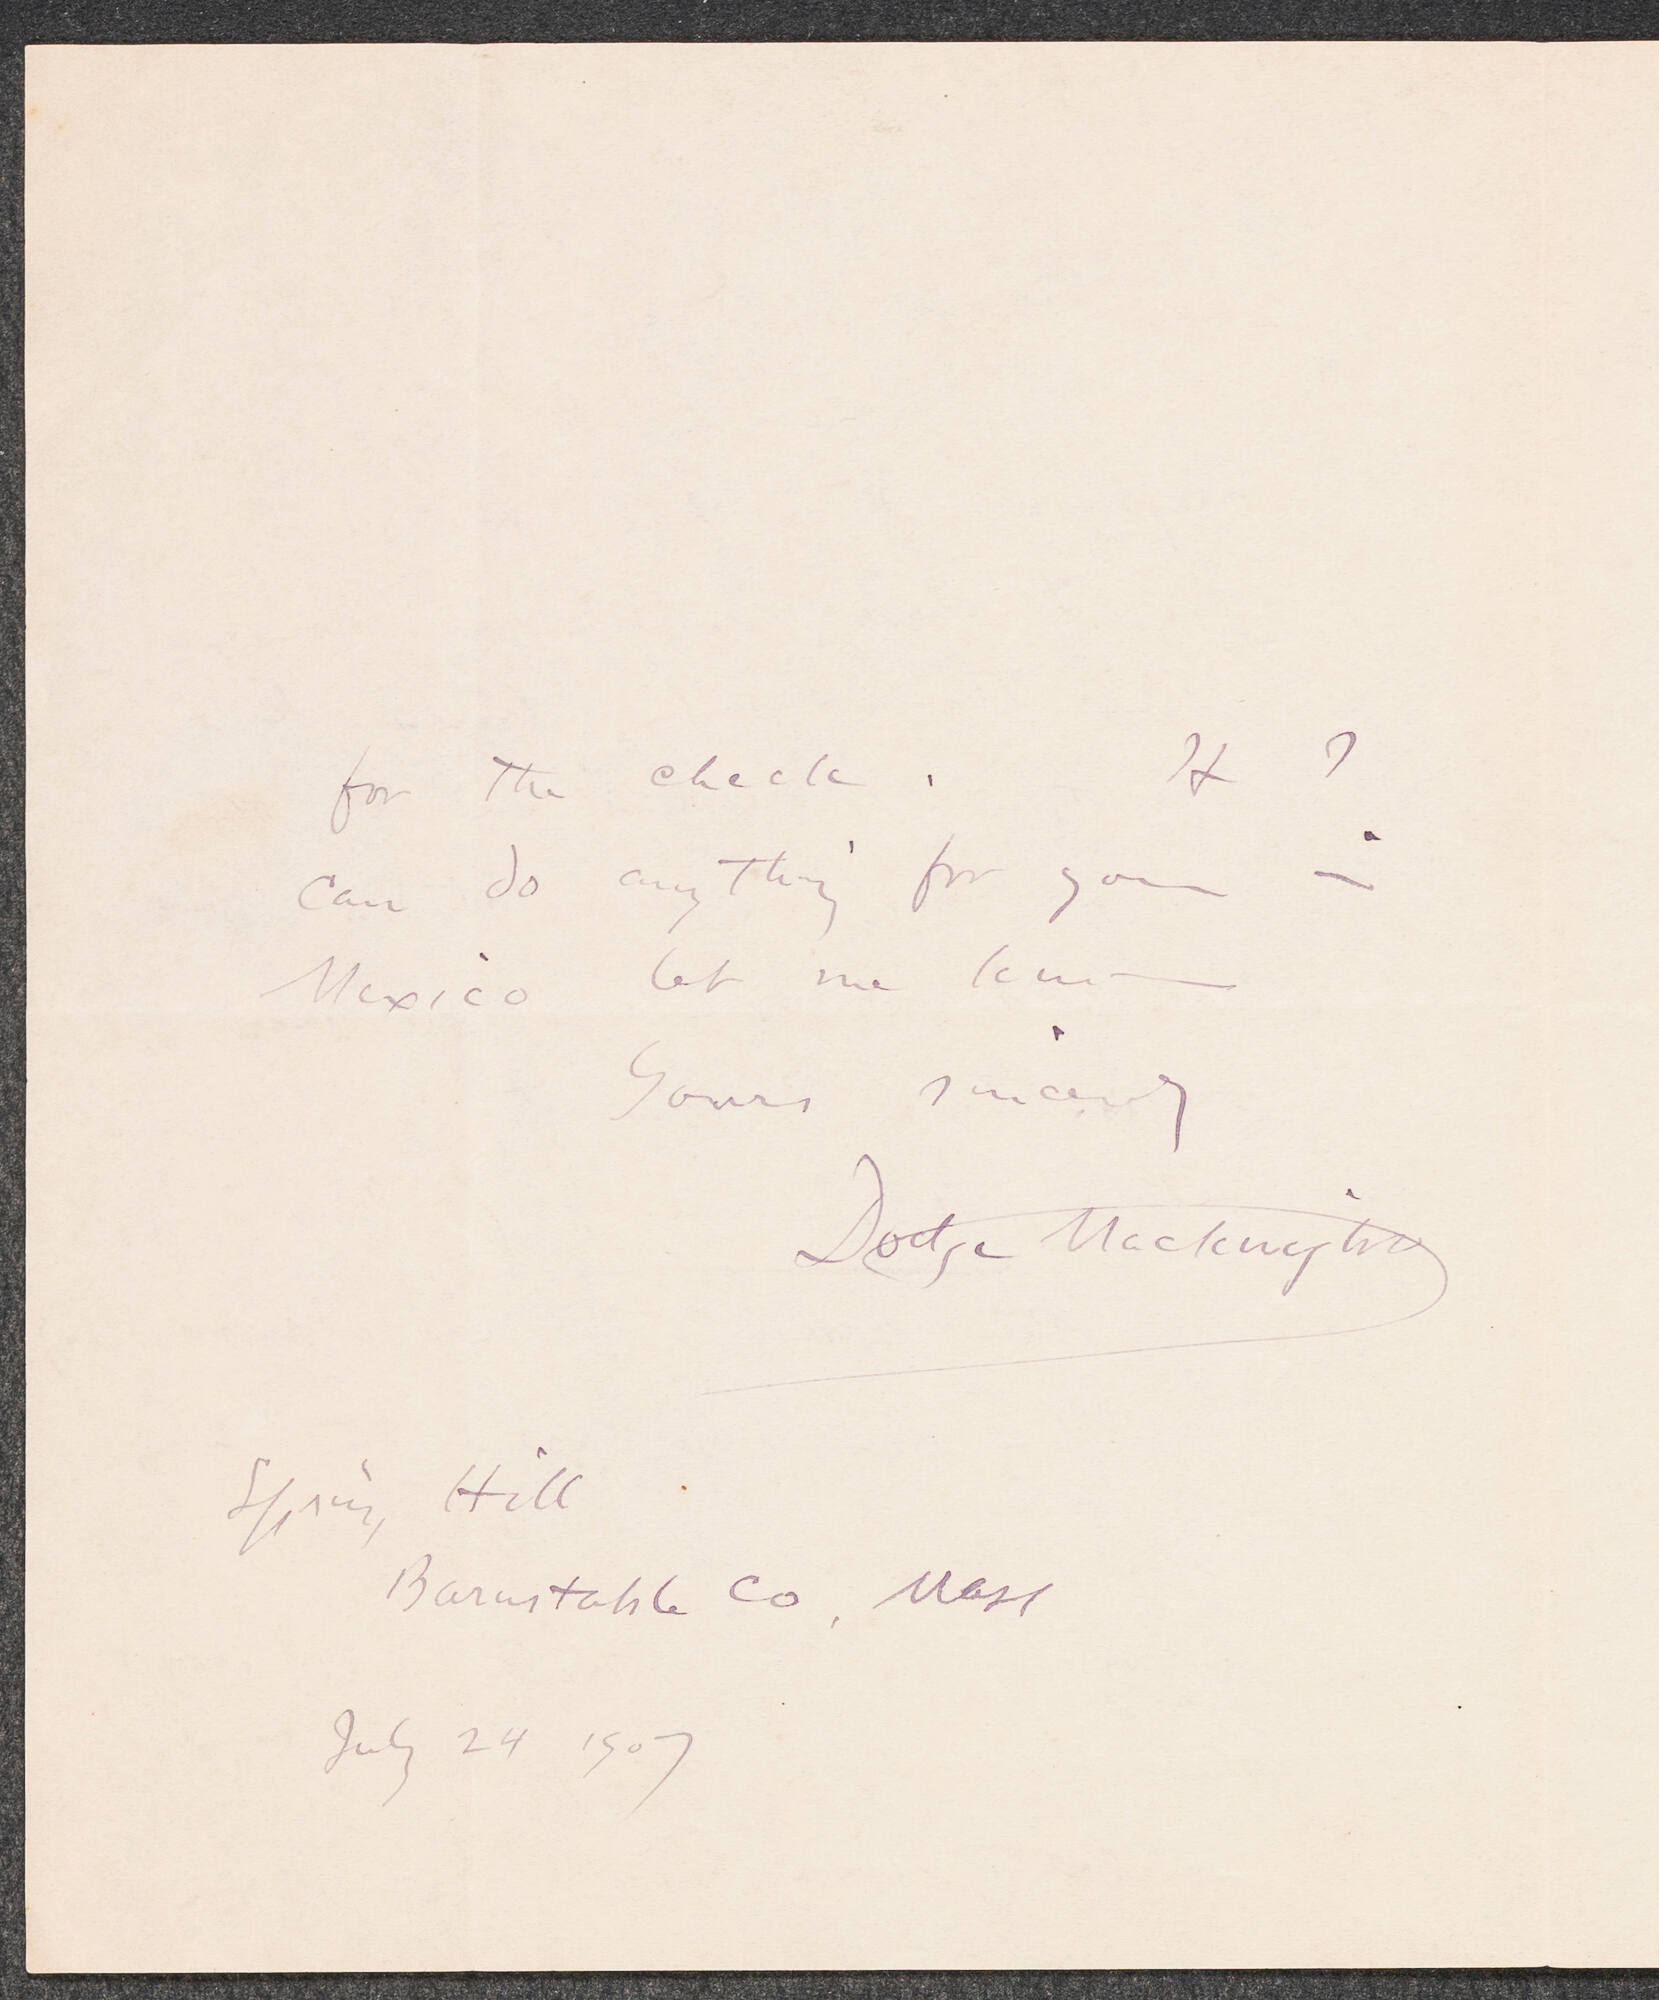 for the check. If I
can do anything for you in
Mexico let me know
Yours sincerely
Dodge Macknight
Spring Hill
Barnstable Co, Mass
July 24 1907